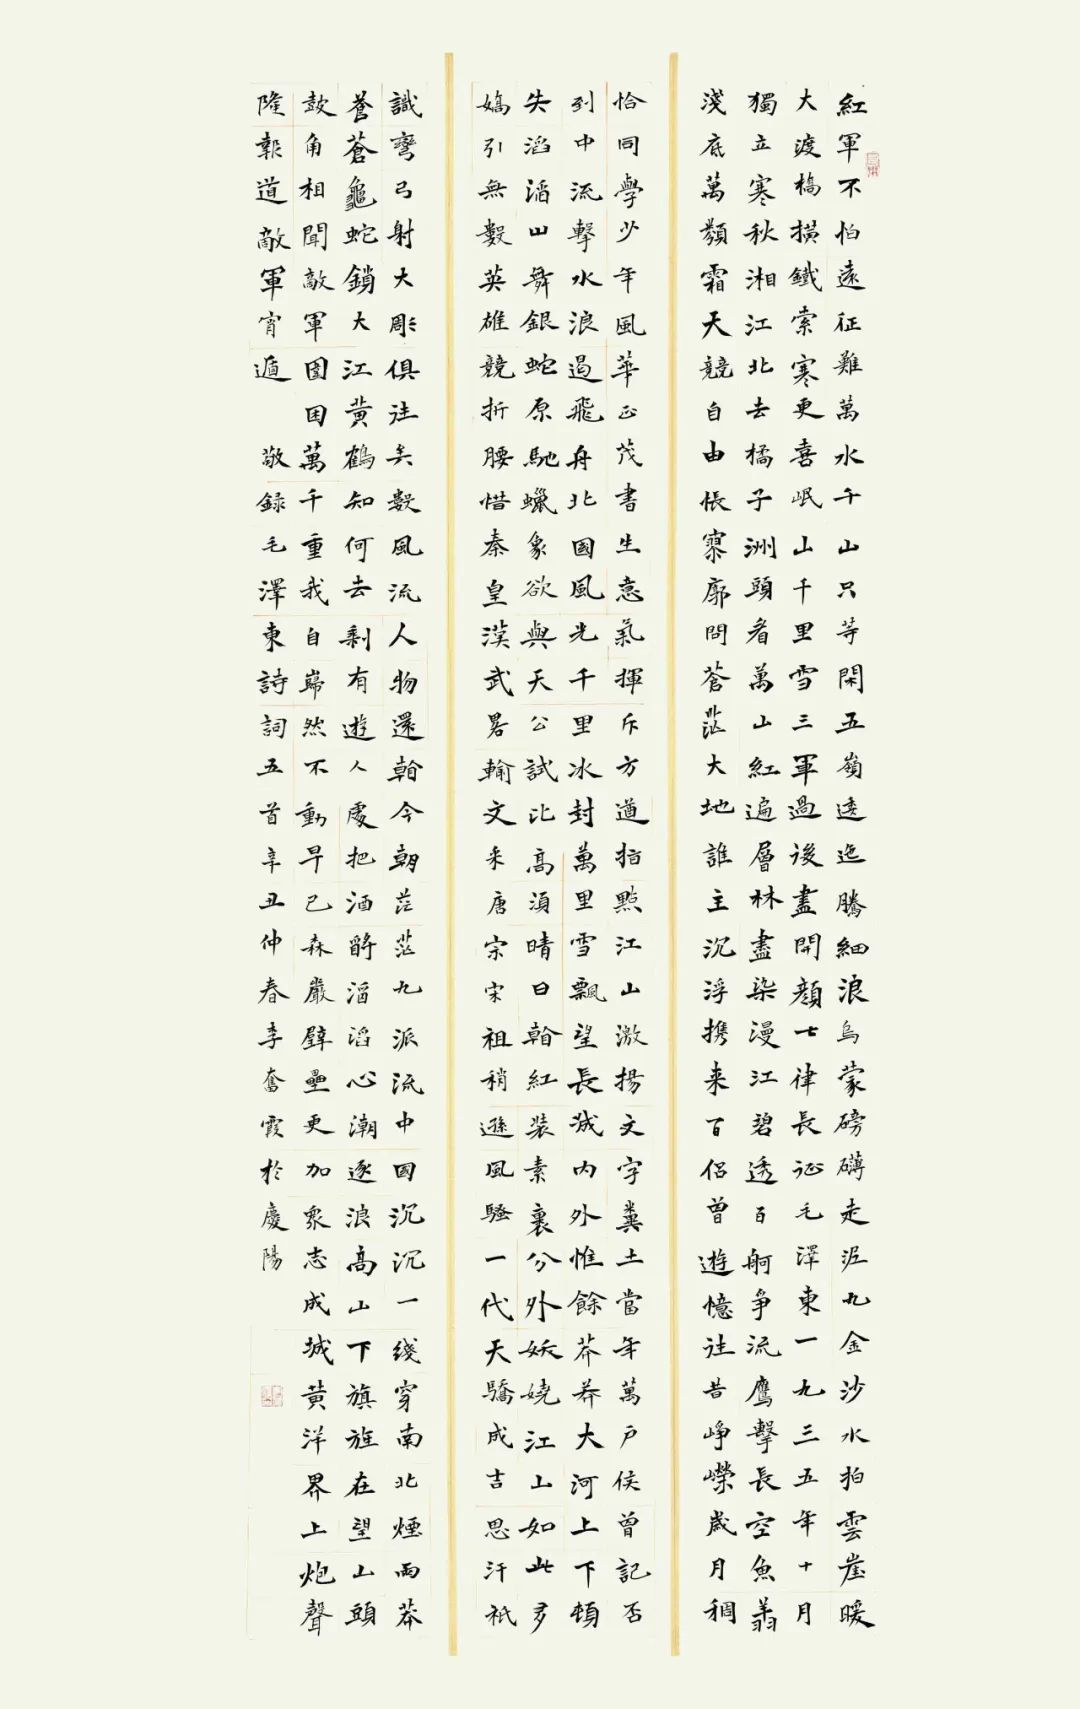 紅軍不怕遠征難萬水千山只等閑五嶺逶迤騰細浪烏蒙磅礴走泥丸金沙水拍雲崖暖
大渡橋橫鐵索寒更喜岷山千里雪三軍過後盡開顏七律長征毛澤東一九三五年十月
獨立寒秋湘江北去橘子洲頭看萬山紅遍層林盡染漫江碧透百舸爭流鷹擊長空魚翔
淺底萬類霜天競自由悵寥廓問蒼茫大地誰主沉浮携来百侶曾遊憶往昔崢嶸歲月稠
恰同學少年風華正茂書生意氣揮斥方遒指點江山激揚文字糞土當年萬戶侯曾記否
到中流擊水浪遏飛舟北國風光千里冰封萬里雪飄望長城内外惟餘莽莽大河上下頓
失滔滔山舞銀蛇原馳蠟象欲與天公試比高須晴日看紅裝素裹分外妖嬈江山如此多
嬌引無數英雄競折腰惜秦皇漢武畧輸文采唐宗宋祖稍遜風騷一代天驕成吉思汗祇
識彎弓射大彫俱往矣數風流人物還看今朝茫茫九派流中國沉沉一綫穿南北煙雨莽
蒼蒼龜蛇鎖大江黃鶴知何去剩有遊人處把酒酹滔滔心潮逐浪高山下旗旌在望山頭
鼓角相聞敵軍圍困萬千重我自巋然不動早已森嚴壁壘更加衆志成城黃洋界上炮聲
隆報道敵軍宵遁 敬録毛澤東詩詞五首辛丑仲春李奮霞於慶陽